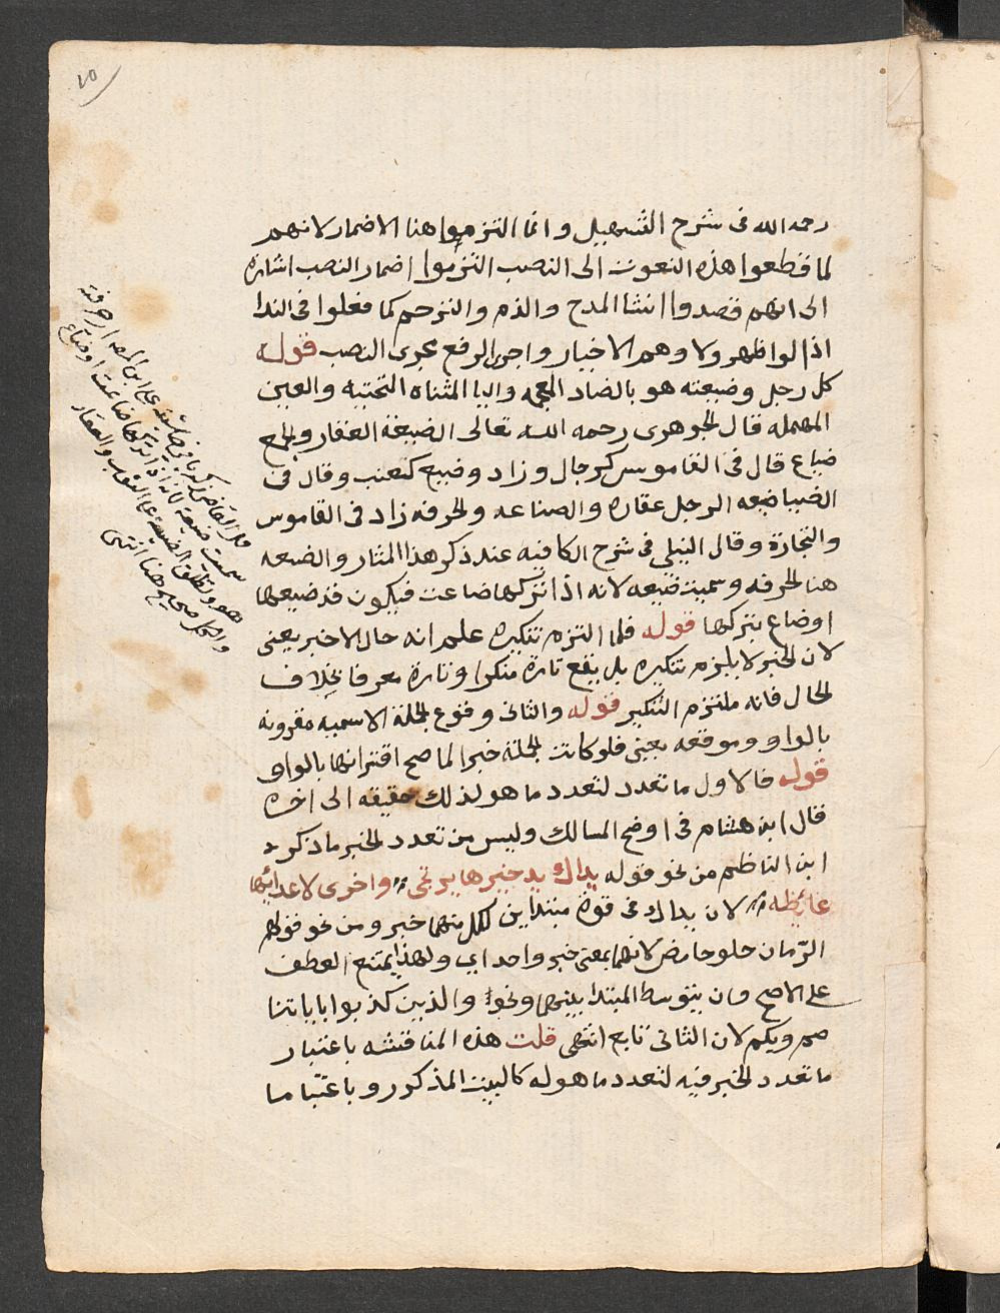 ٢٥
رحمه الله فى شرح التسهيل وانما التزموا هنا الاضمار لانهم
لما قطعوا هذه النعوت الى النصب التزموا اضمار النصب اشارة
الى انهم قصدوا انشا المدح والذم والترحم كما فعلوا فى الندا
اذ لو اظهر ولاوهم الاخبار واجرى الرفع مجرى النصب قوله
كل رجل وضيعته هو بالضاد المعجمه واليا المثناه التحتيه والعين
المهمله قال الجوهرى رحمه الله تعالى الضيعة العقار والجمع
ضياع قال فى القاموس كرجال وزاد وضيع كعنب وقال فى
الضيا ضيعه الرجل عقاره والصناعه والحرفه زاد فى القاموس
والتجارة وقال النيلى فى شرح الكافيه عند ذكر هذا المثار والضيعه
هنا الحرفه وسميت ضيعه لانه اذا تركها ضاعت فيكون قد ضيعها
اوضاع بتركها قوله فلما التزم تنكيره علم انه حال لا خبر يعنى
لان الخبر لا يلزم تنكيره بل يقع تارة منكرا وتارة معرفا بخلاف
الحال فانه ملتزم التنكير قوله والثانى وقوع الجملة الاسميه مقرونه
بالواو وموقعه يعنى فلو كانت الجملة خبرا لما صح اقترانها بالواو
قوله فالاول ما تعدد لتعدد ما هو لذلك حقيقه الى اخره
قال ابن هشام فى اوضح المسالك وليس من تعدد الخبر ما ذكره
ابن الناظم من نحو قوله يداك يد خيرها يرتجى واخرى لاعدائها
غائظه لان يداك فى قوة مبتداين لكل منهما خبر ومن نحو قولهم
الرمان حلو حامض لانهما بمعنى خبر واحد اى ولهذا يمتنع العطف
على الاصح وان يتوسط المبتدا بينهما ونحو والذين كذبوا باياتنا
صم وبكم لان الثانى تابع انتهى قلت هذه المناقشه باعتبار
ما تعدد الخبر فيه لتعدد ما هو له كالبيت المذكور وباعتبار ما
قال القاضى زكريا فى حاشيته على ابن المص اى حرفته
سميت ضيعة لانه اذا تركها ضاعت او ضاع
هو وتطلق الضيعة على الثوب والعقار
والكل صحيح هنا انتهى